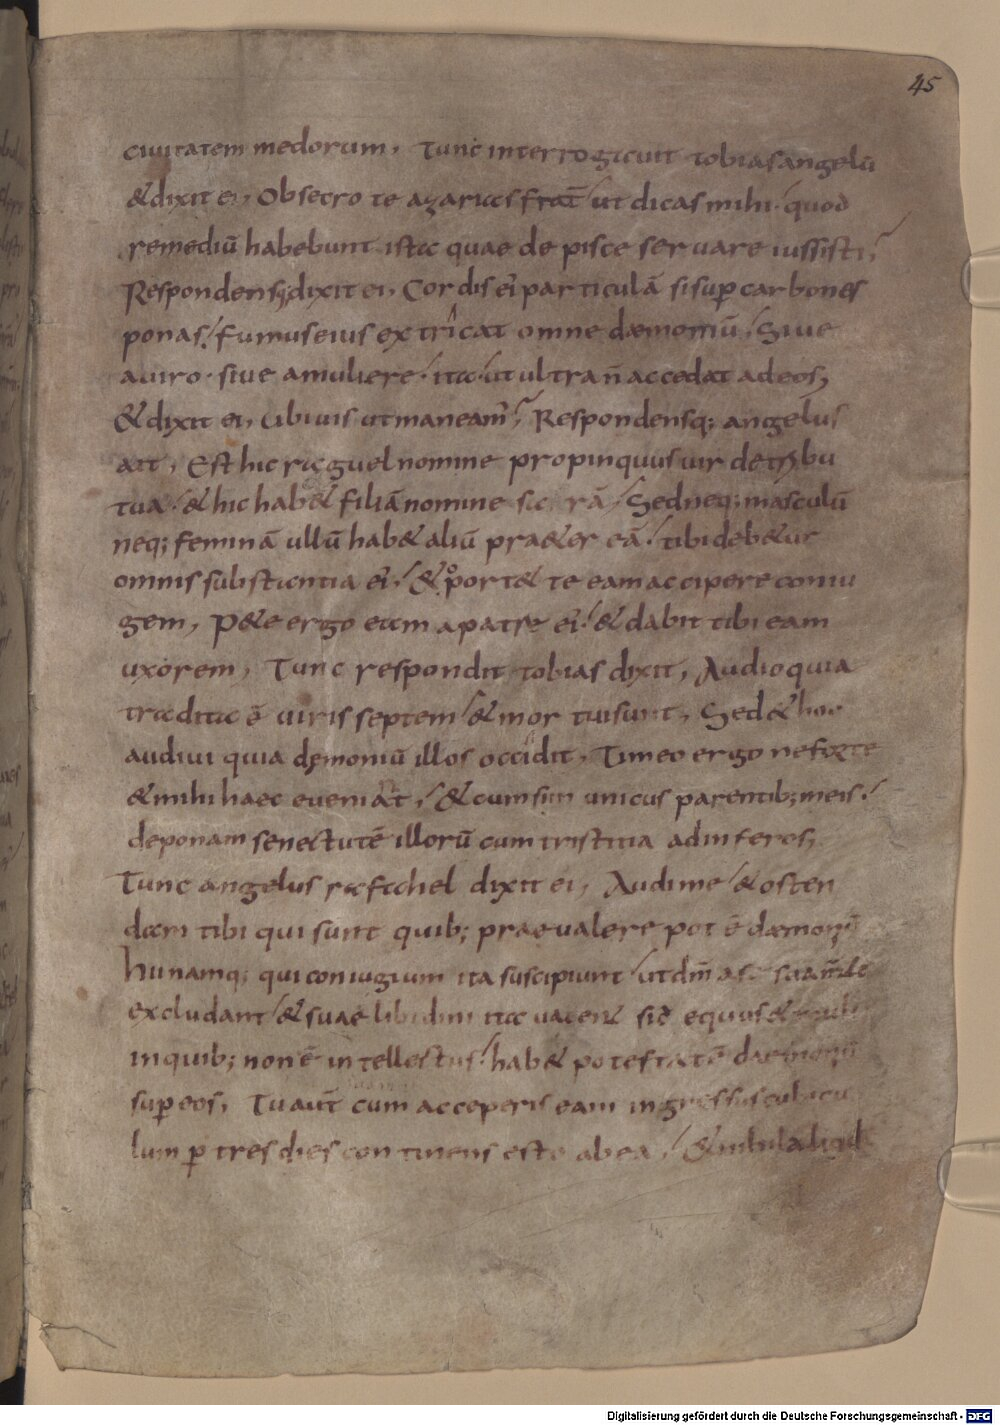 45
ciuitatem medorum, Tunc interrogauit tobias angelū
& dixit ei, Obsecro te azarias frat̄ ut dicas mihi · quod
remediū habebunt ista quae de pisce seruare iussisti,
Respondensq; dixit ei, Cordis ei' particulā si sup̄ carbones
ponas, fumus eius extricat omne daemoniū, Siue
a uiro · siue a muliere, ita ut ultra ñ accedat ad eos,
& dixit ei, Ubi uis ut maneam', Respondensq; angelus
ait, Est hic raguel nomine propinquus uir de tribu
tua, & hic hab& filiā nomine sarā, Sed neq; masculū
neq; feminā ullū hab& aliū pra&er eā, tibi deb&ur
omnis substantia ei', & oport& te eam accipere coniu
gem, P&e ergo eam a patre ei', & dabit tibi eam
uxorem, Tunc respondit tobias dixit, Audio quia
tradita ē uiris septem, & mortui sunt, Sed & hoc
audiui quia dęmoniū illos occidit, Timeo ergo ne forte
& mihi haec eueniat, & cum sim unicus parentib; meis,
deponam senectutē illorū cum tristitia ad inferos,
Tunc angelus rafahel dixit ei, Audi me, & osten
dam tibi qui sunt quib; praeualere pot ē daemoniū
hii namq; qui coniugium ita suscipiunt, ut dm̄ a se & a sua m̄te
excludant, & suae libidini ita uacent sic̄ equus & mulus
in quib; non ē intellectus, hab& potestatē daemoniū
sup̄ eos, Tu aūt cum acceperis eam ingressus cubicu
lum p̄ tres dies continens esto ab ea, & nihil aliud
Digitalisierung gefördert durch die Deutsche Forschungsgemeinschaft - DFG